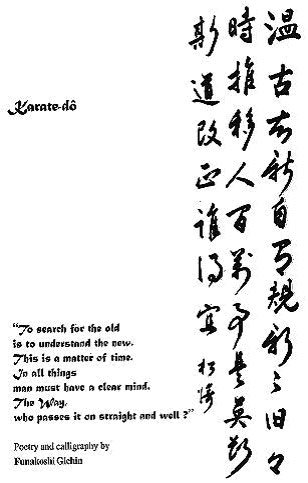 温古知新自有規新々旧々
時推移人間萬事英断
斯道改正誰得宜 松濤
Karate-dô
"To search for the old
is to understand the new.
This is a matter of time.
In all things
man must have a clear mind.
The Way,
who passes it on straight and well ?"
Poetry and calligraphy by
Funakoshi Gichin